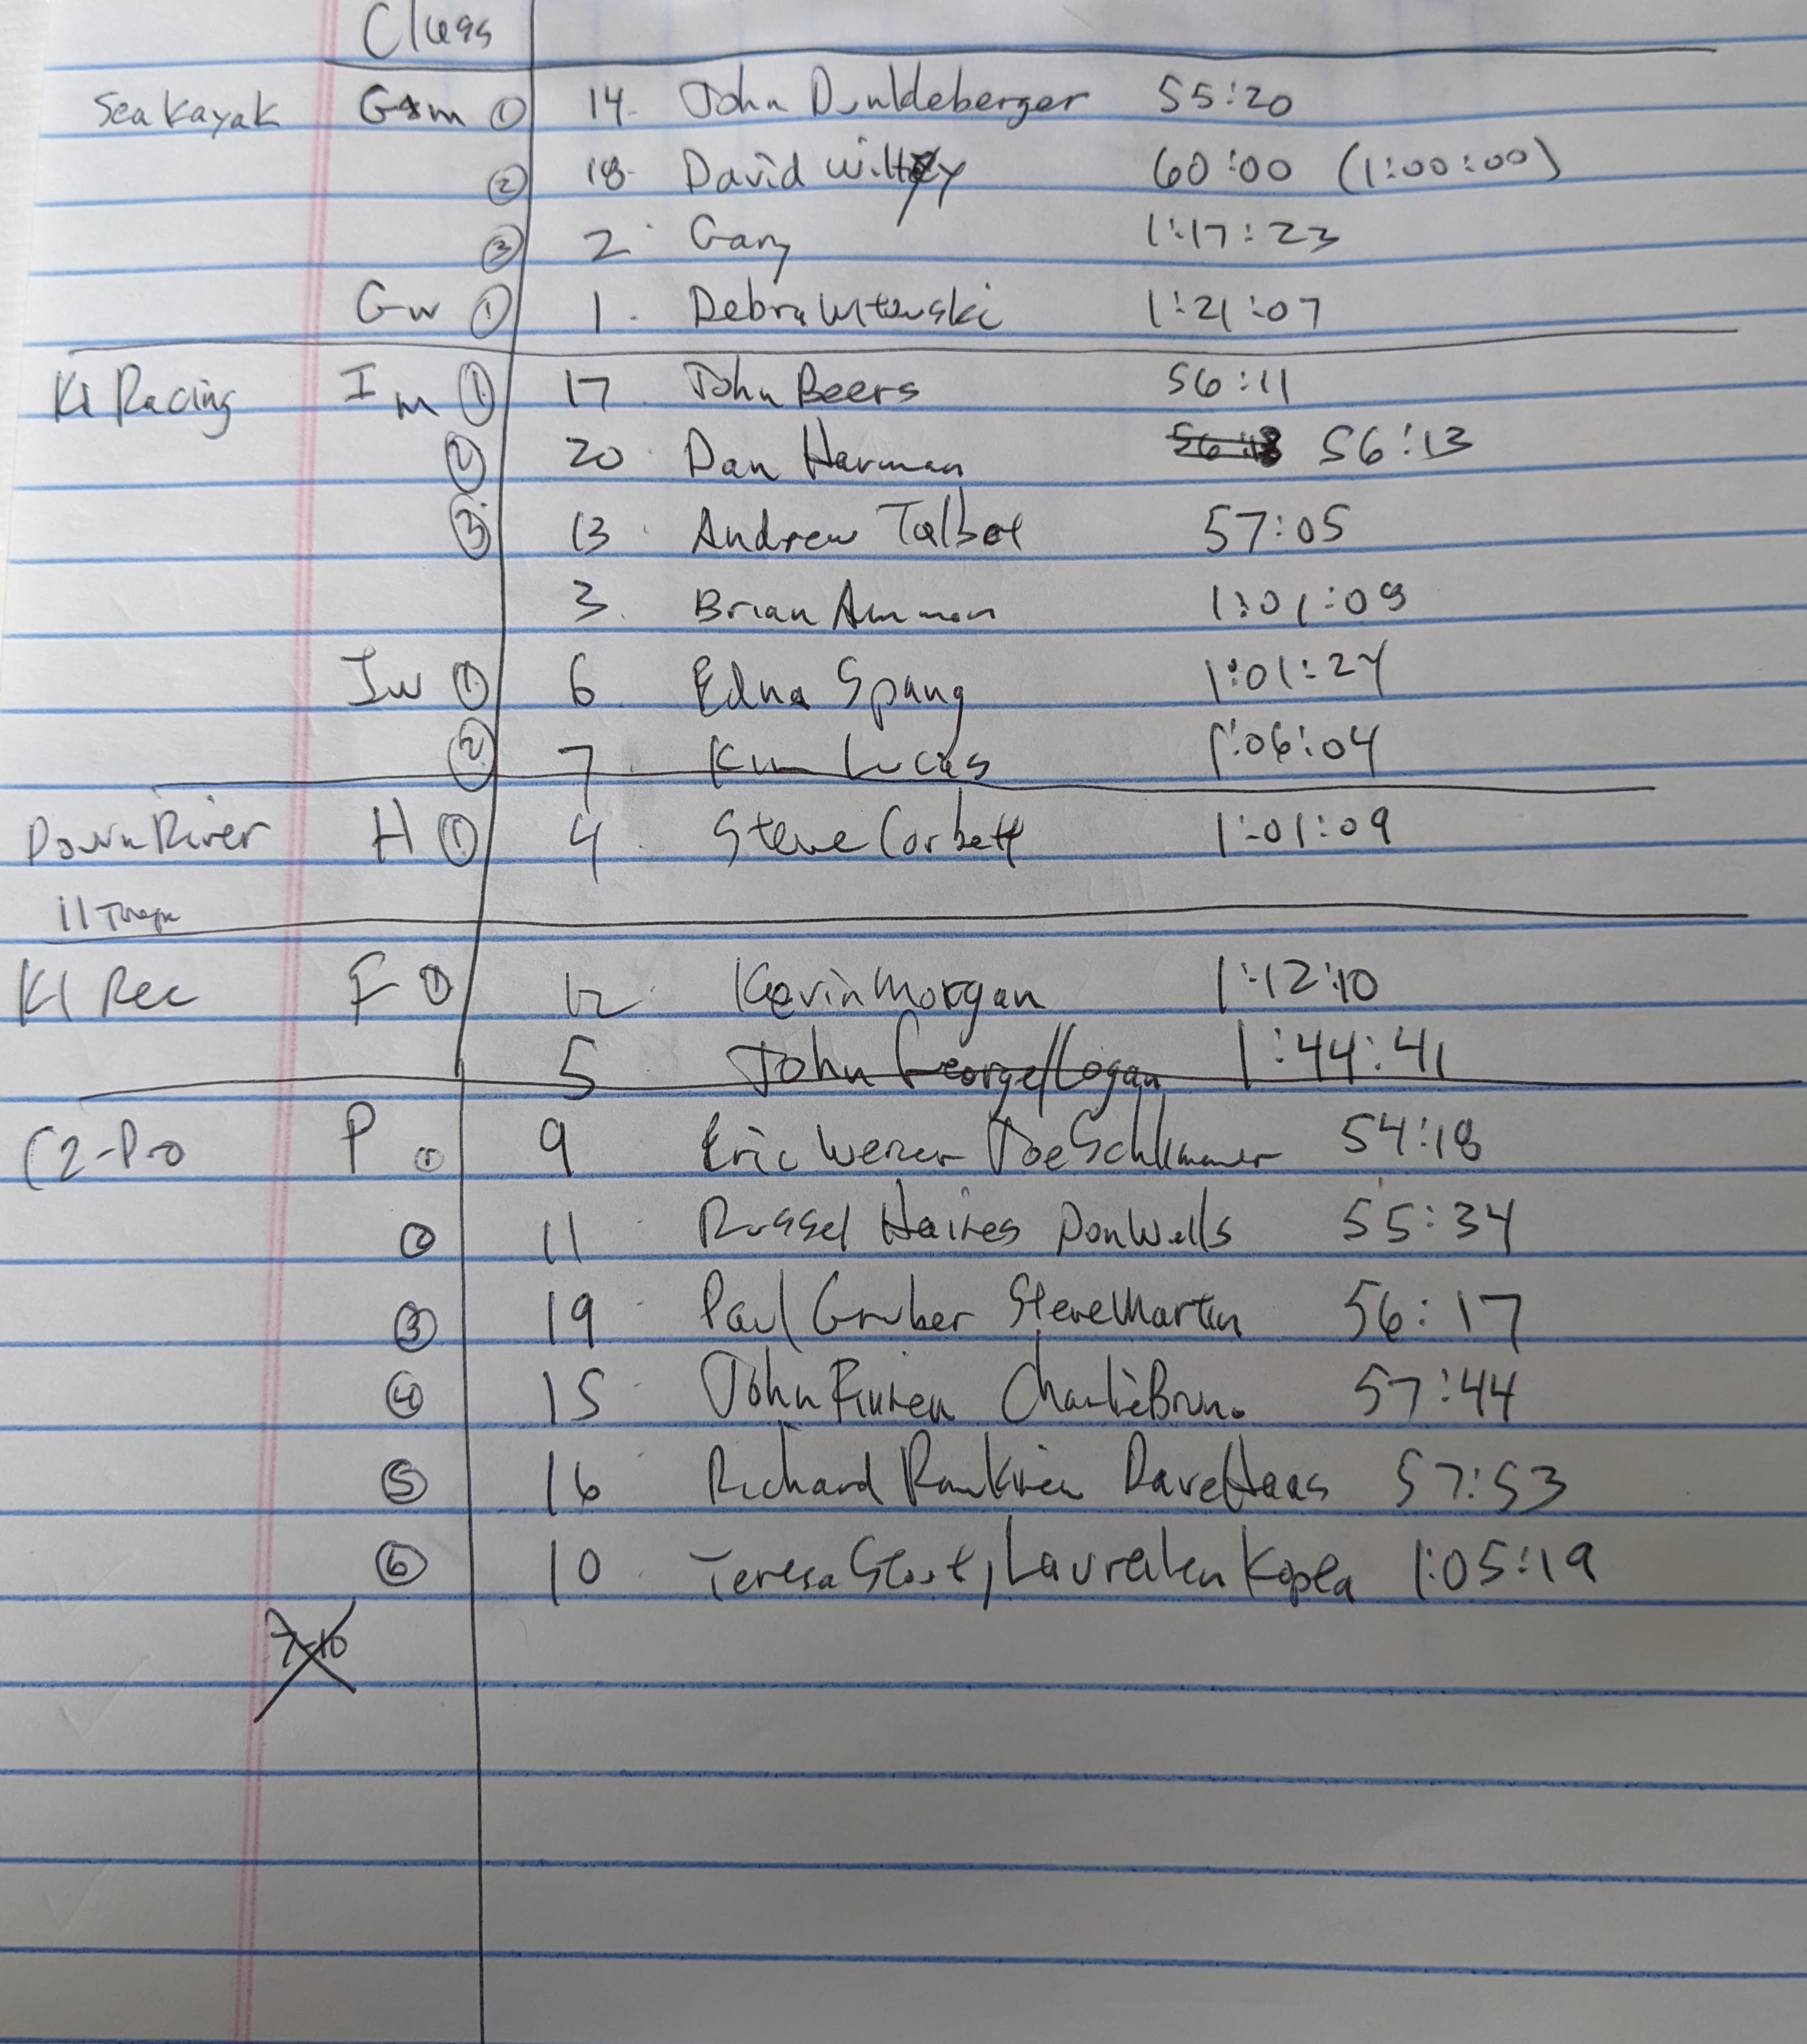 Class
Sea Kayak Gm ① 14. John Dunkleberger 55:20
② 18. David 60:00 (1:00:00)
③ 2. Gary 1:17:23
Gw ① 1. Debra 1:21:07
K1 Racing Im ① 17 John Beers 56:11
② 20. Dan Harman 56:13
③ 13. Andrew Talbot 57:05
3. Brian Ammon 1:01:09
Iw ① 6 Edna Spang 1:01:24
② 7. Kim Lucas 1:06:04
DownRiver H ① 4. Steve Corbett 1:01:09
11
K1 Rec F ① 12. Kevin Morgan 1:12:10
5 John George/Logan 1:44:41
C2-Pro P ① 9 Eric Joe 54:18
② 11. Russel Haines Don Wells 55:34
③ 19. Paul Gruber Steve Martin 56:17
④ 15. John Charlie 57:44
⑤ 16 Richard Dave Haas 57:53
⑥ 10. Teresa 1:05:19